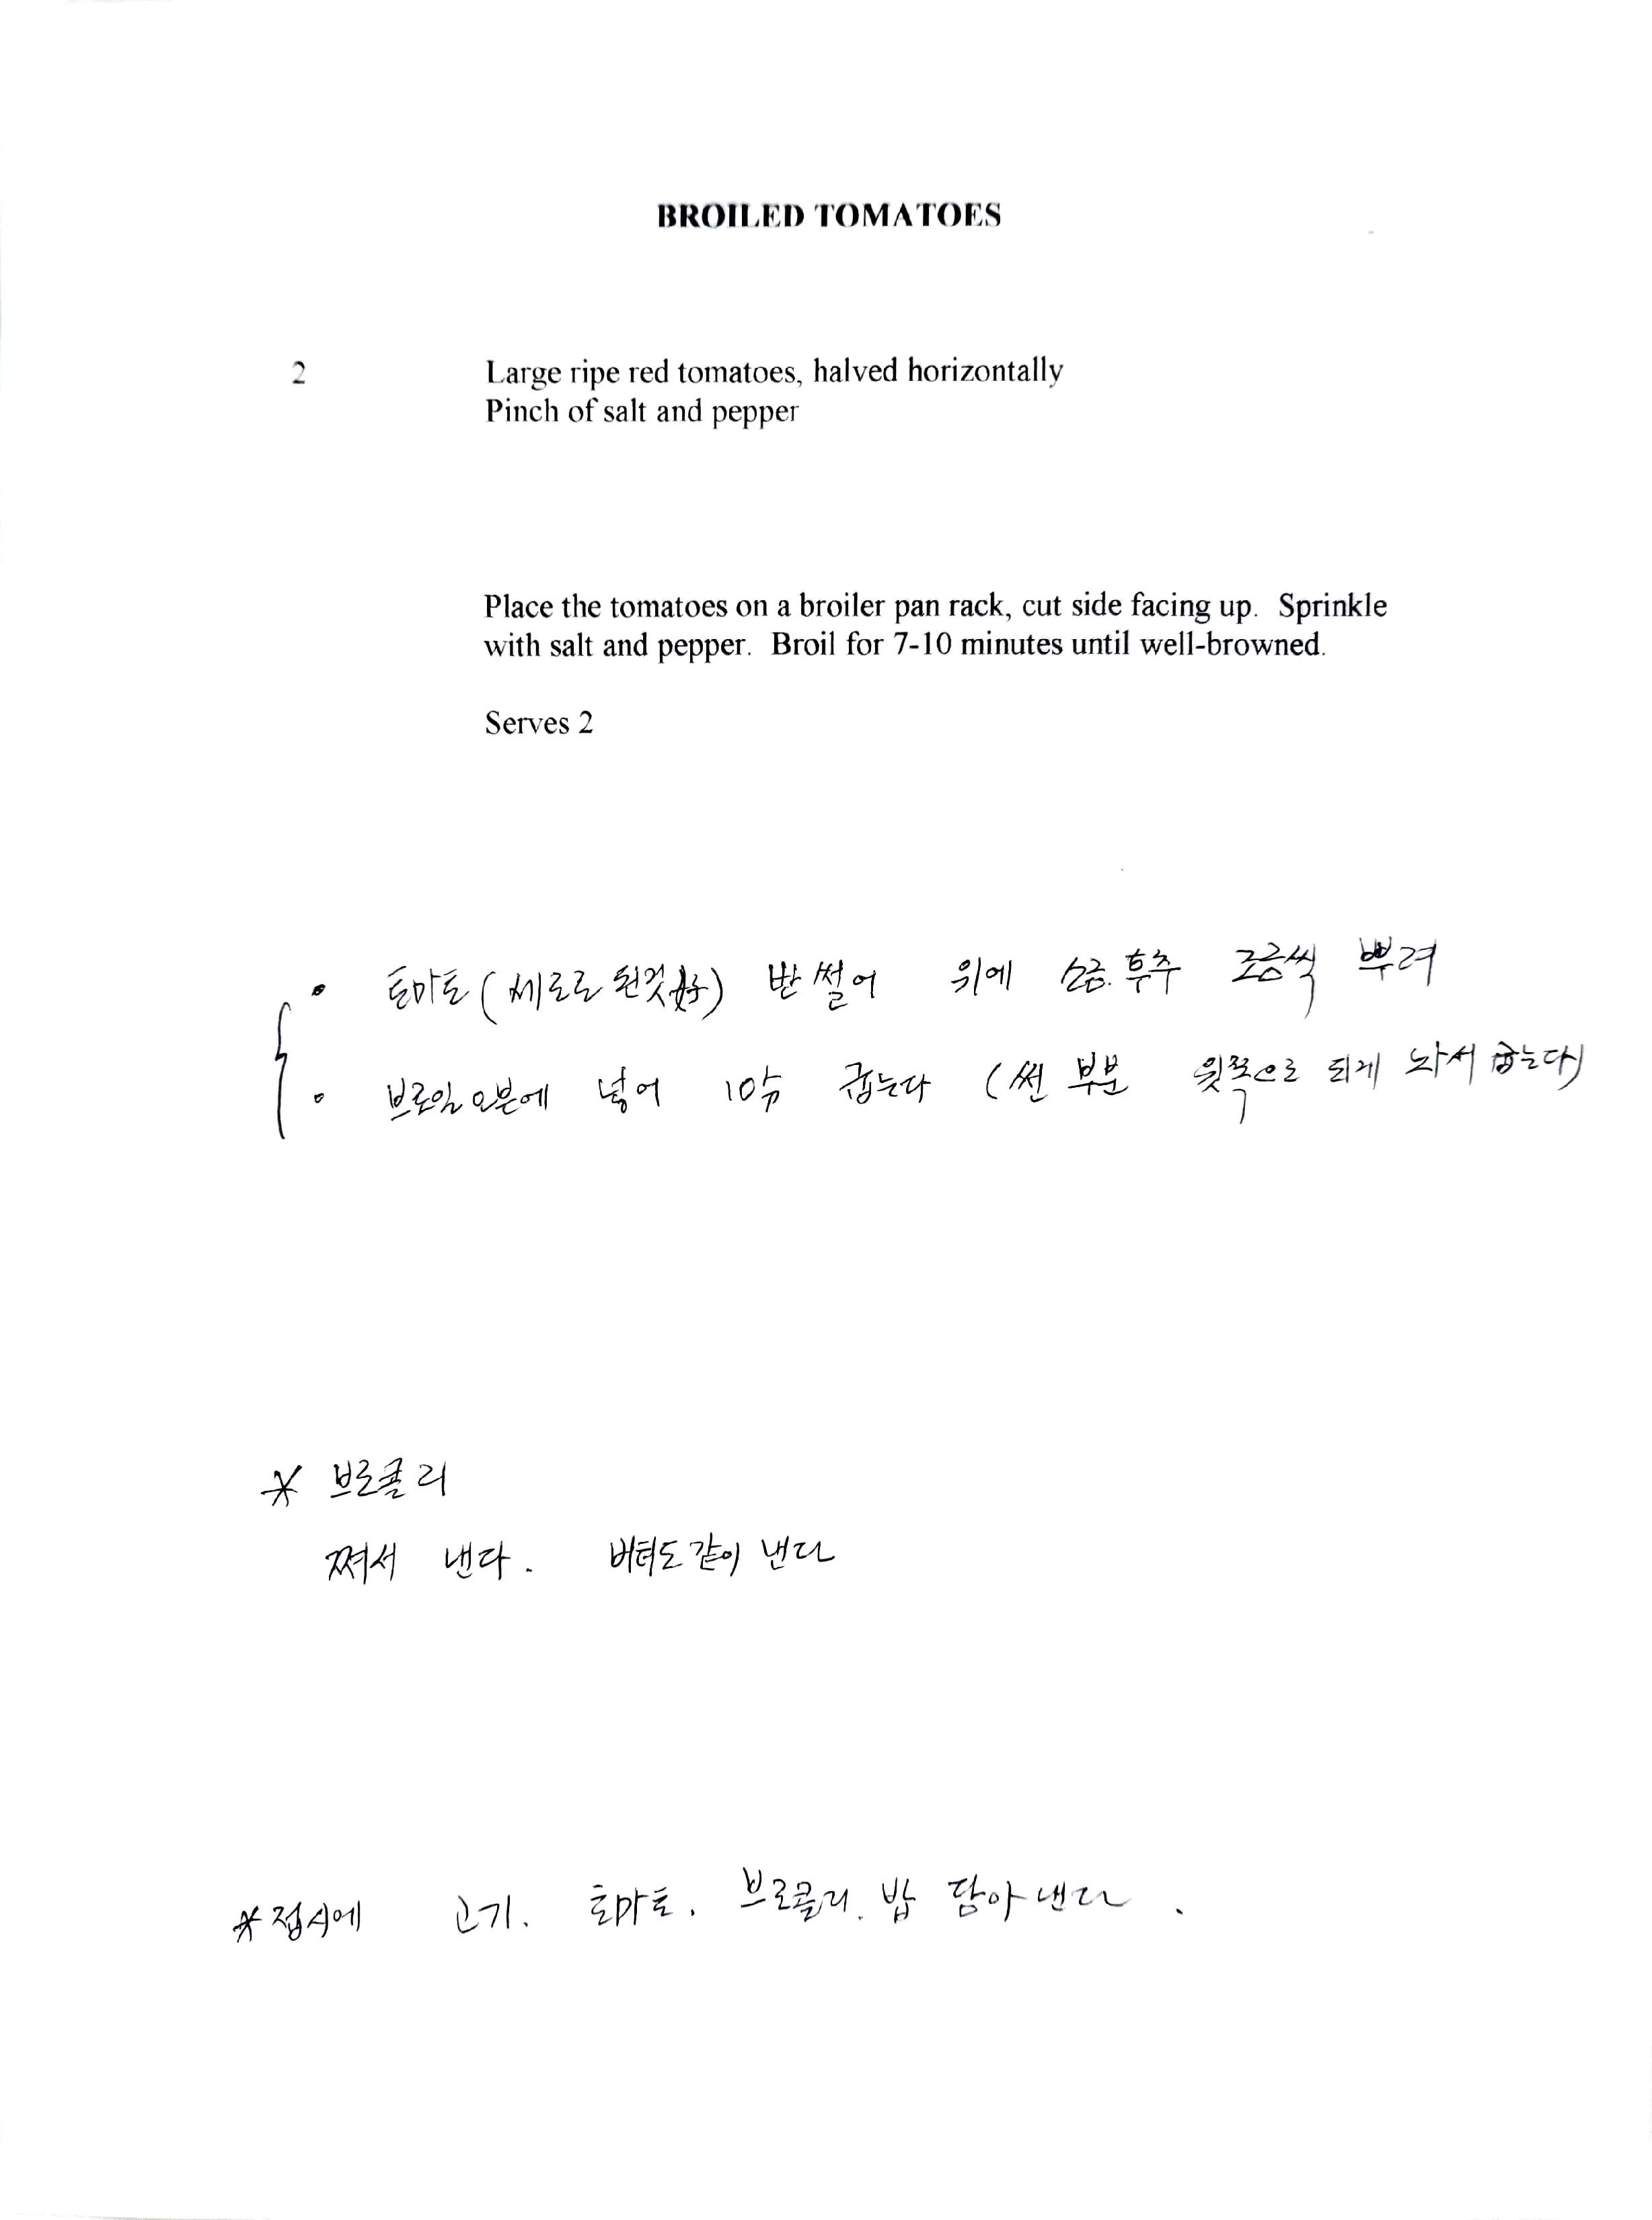 BROILED TOMATOES
2 Large ripe red tomatoes, halved horizontally
Pinch of salt and pepper
Place the tomatoes on a broiler pan rack, cut side facing up. Sprinkle
with salt and pepper. Broil for 7-10 minutes until well-browned.
Serves 2
• 토마토 (세로로 된것 好) 반 썰어 위에 소금. 후추 조금씩 뿌려
• 브로일 오븐에 넣어 10分 굽는다 (썬 부분 윗쪽으로 되게 놔서 굽는다)
* 브로콜리
쪄서 낸다. 버터도 같이 낸다
* 접시에 고기. 토마토. 브로콜리. 밥 담아 낸다.